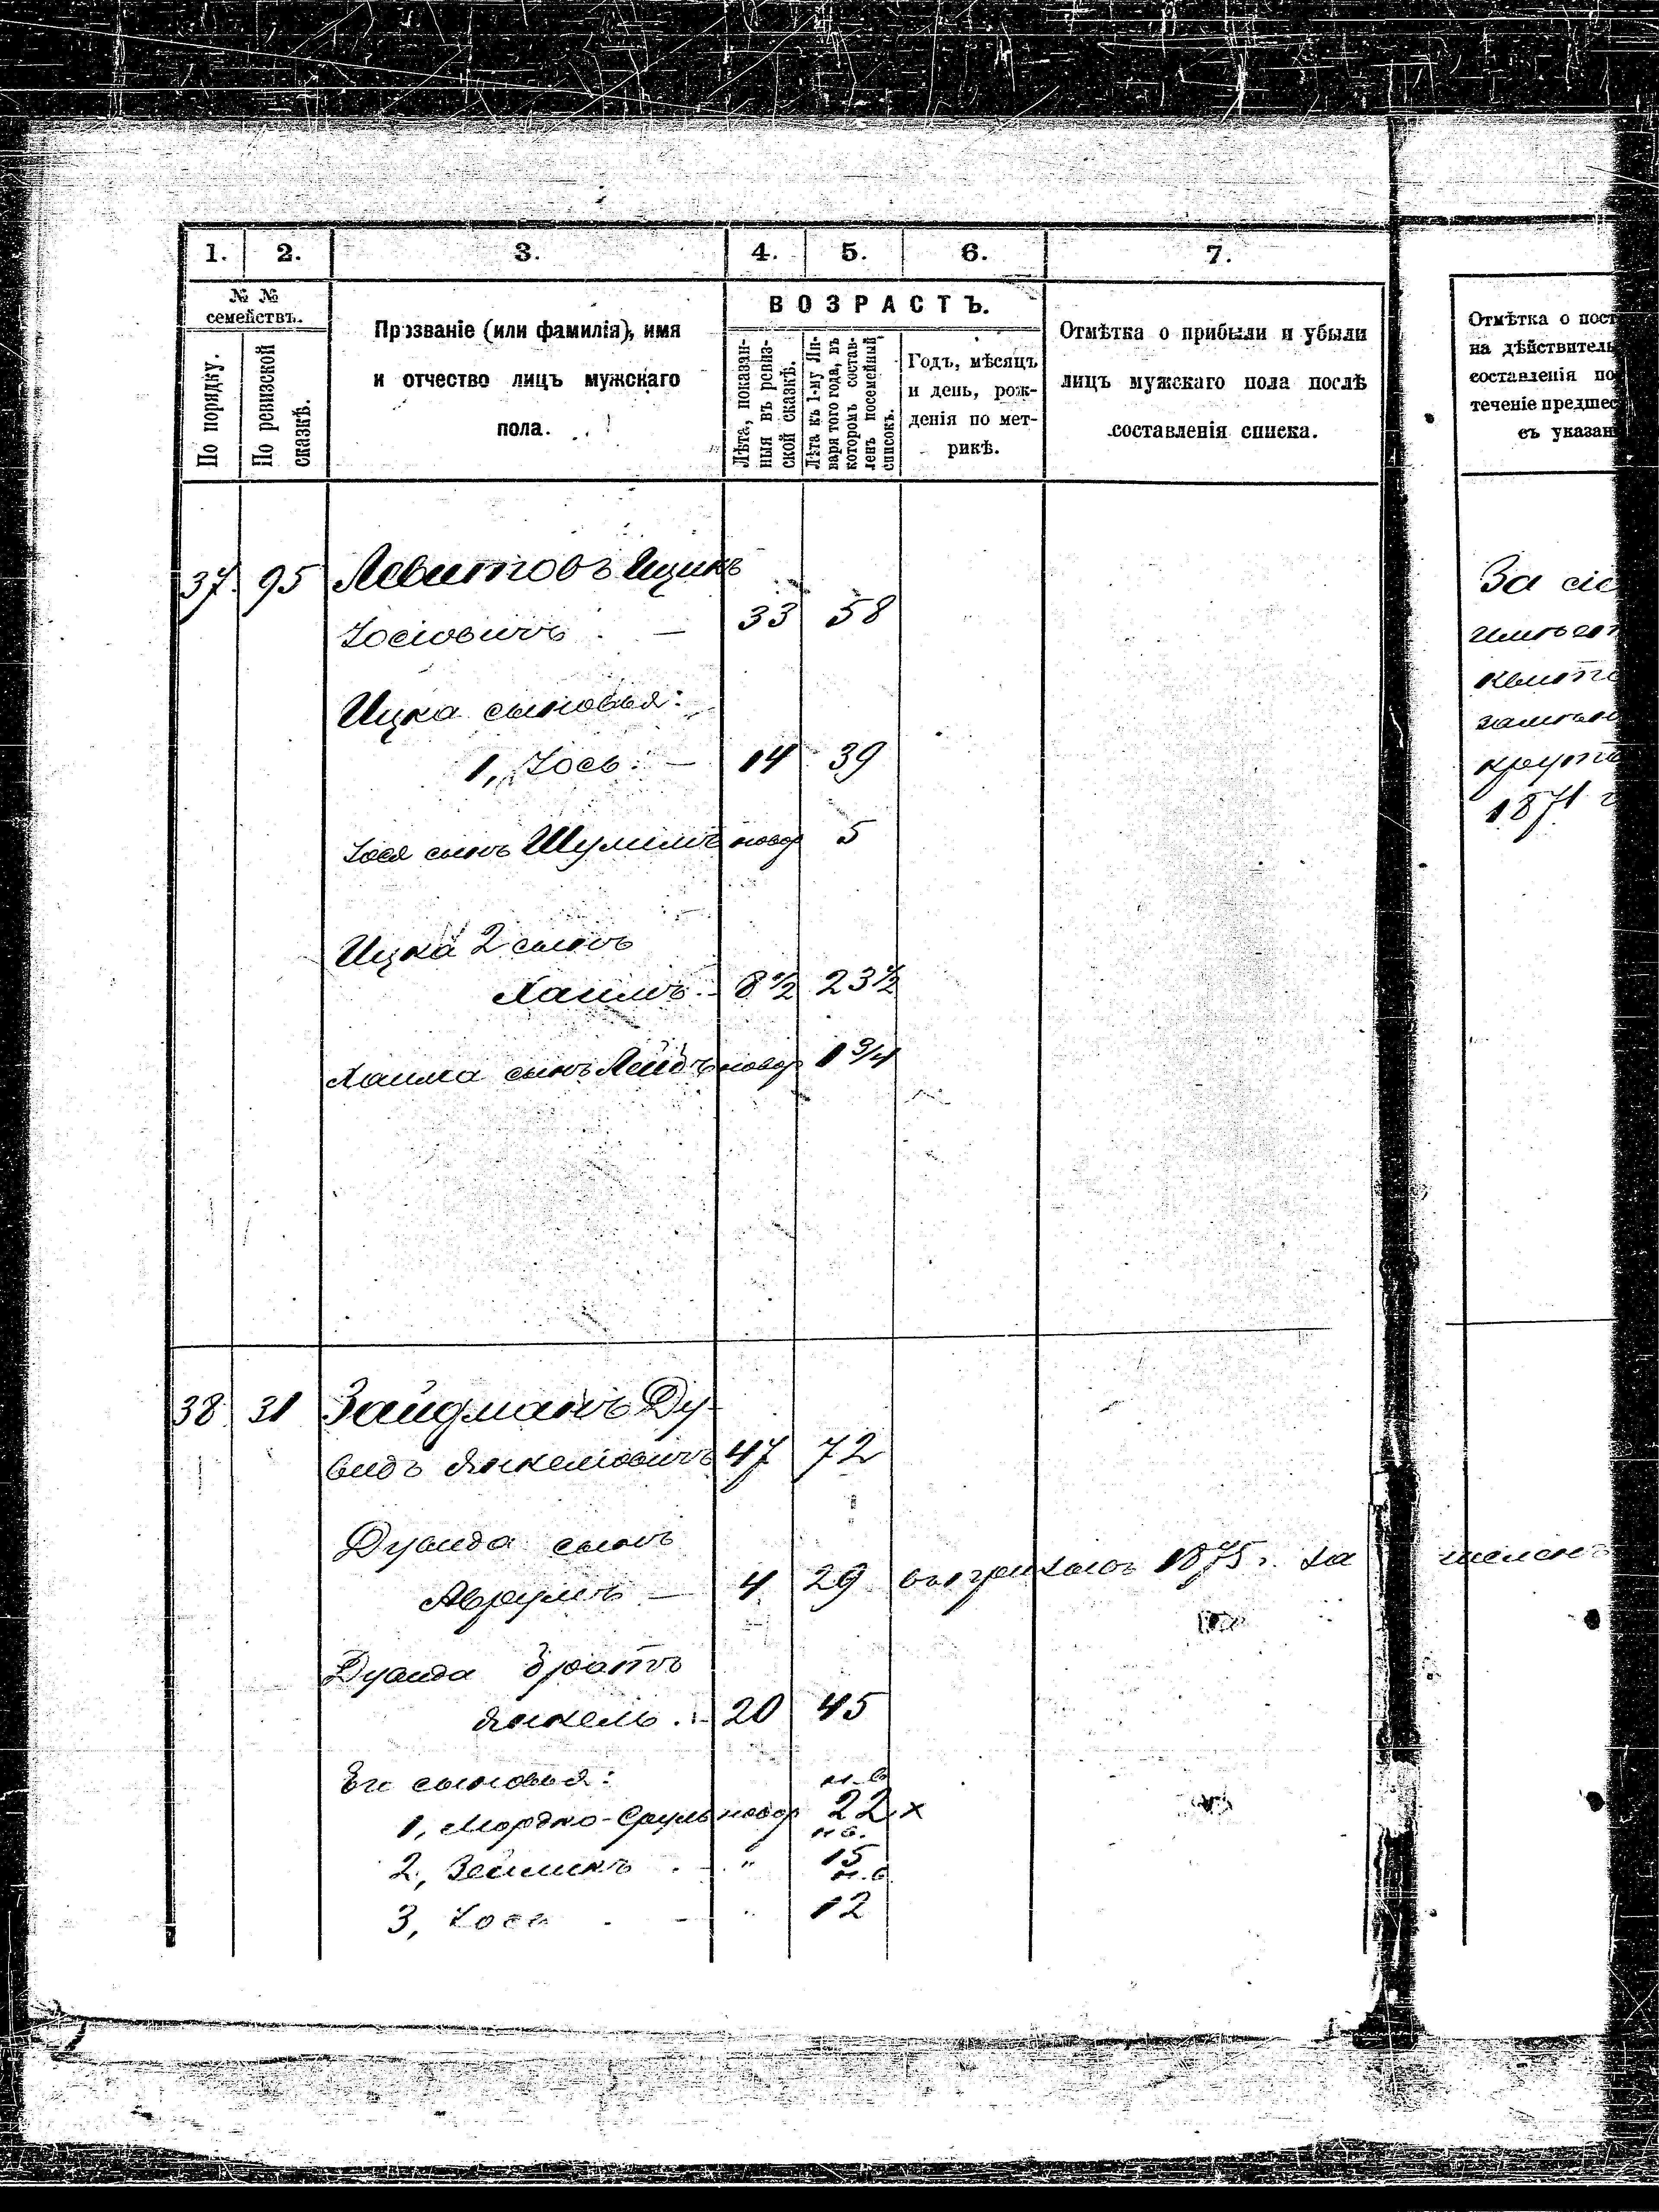 1. 2. 3. 4. 5. 6. 7.
№ № семействъ.
По порядку.
По ревизской сказкѣ.
Прозваніе (или фамилія), имя
и отчество лицъ мужскаго
пола.
ВОЗРАСТЪ.
Лѣта, показан-
ныя въ ревиз-
ской сказкѣ.
Лѣта къ 1-му Ян-
варя того года, въ
которомъ состав-
ленъ посемейный
списокъ.
Годъ, мѣсяцъ
и день, рож-
денія по мет-
рикѣ.
Отмѣтка о прибыли и убыли
лицъ мужскаго пола послѣ
составленія списка.
Отмѣтка о пост
на дѣйствитель
составленія по
теченіе предшес
съ указан
37. 95 Левитовъ Ицикъ
Іосіовичъ. — 33 58
Ицка сыновья:
1, Іось. — 14 39
Іося сынъ Шулимъ новор 5
Ицка 2 сынъ
Хаимъ. — 8 1/2 23 1/2
Хаима сынъ Лейбъ новор 1 3/4
За сіе
имѣет
квита
замѣн
крута
1871 г
38. 31 Зайдманъ Ду-
видъ Янкеліовичъ 47 72
Дувида сынъ
Аврумъ — 4 29 1875 г. за
Дувида братъ
Янкель. — 20 45
Его сыновья: н.в.
1, Мордко-Сруль новор 22 х
н.в.
2, Зейликъ . — " 15
н.в.
3, Іось . — " 12